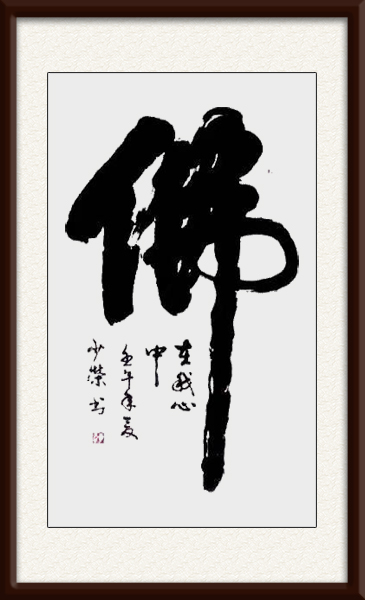 佛
在我心
中
壬午年夏
少榮书